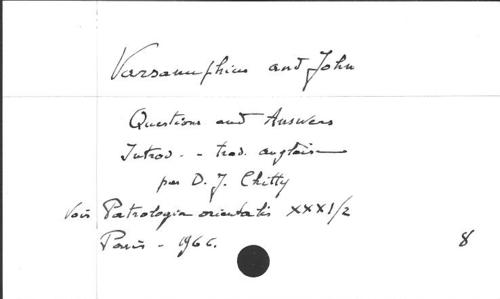 Varsanuphius and John
Questions and Answers
Introd. - trad. anglaise
par D. J. Chitty
Vois Patrologia orientalis XXXI/2
Paris - 1966.
8